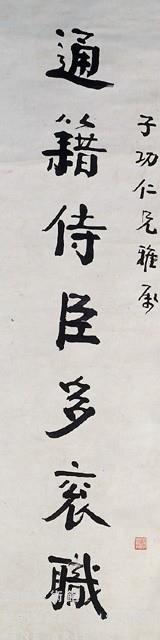 子功仁兄雅属
通籍侍臣多衮職